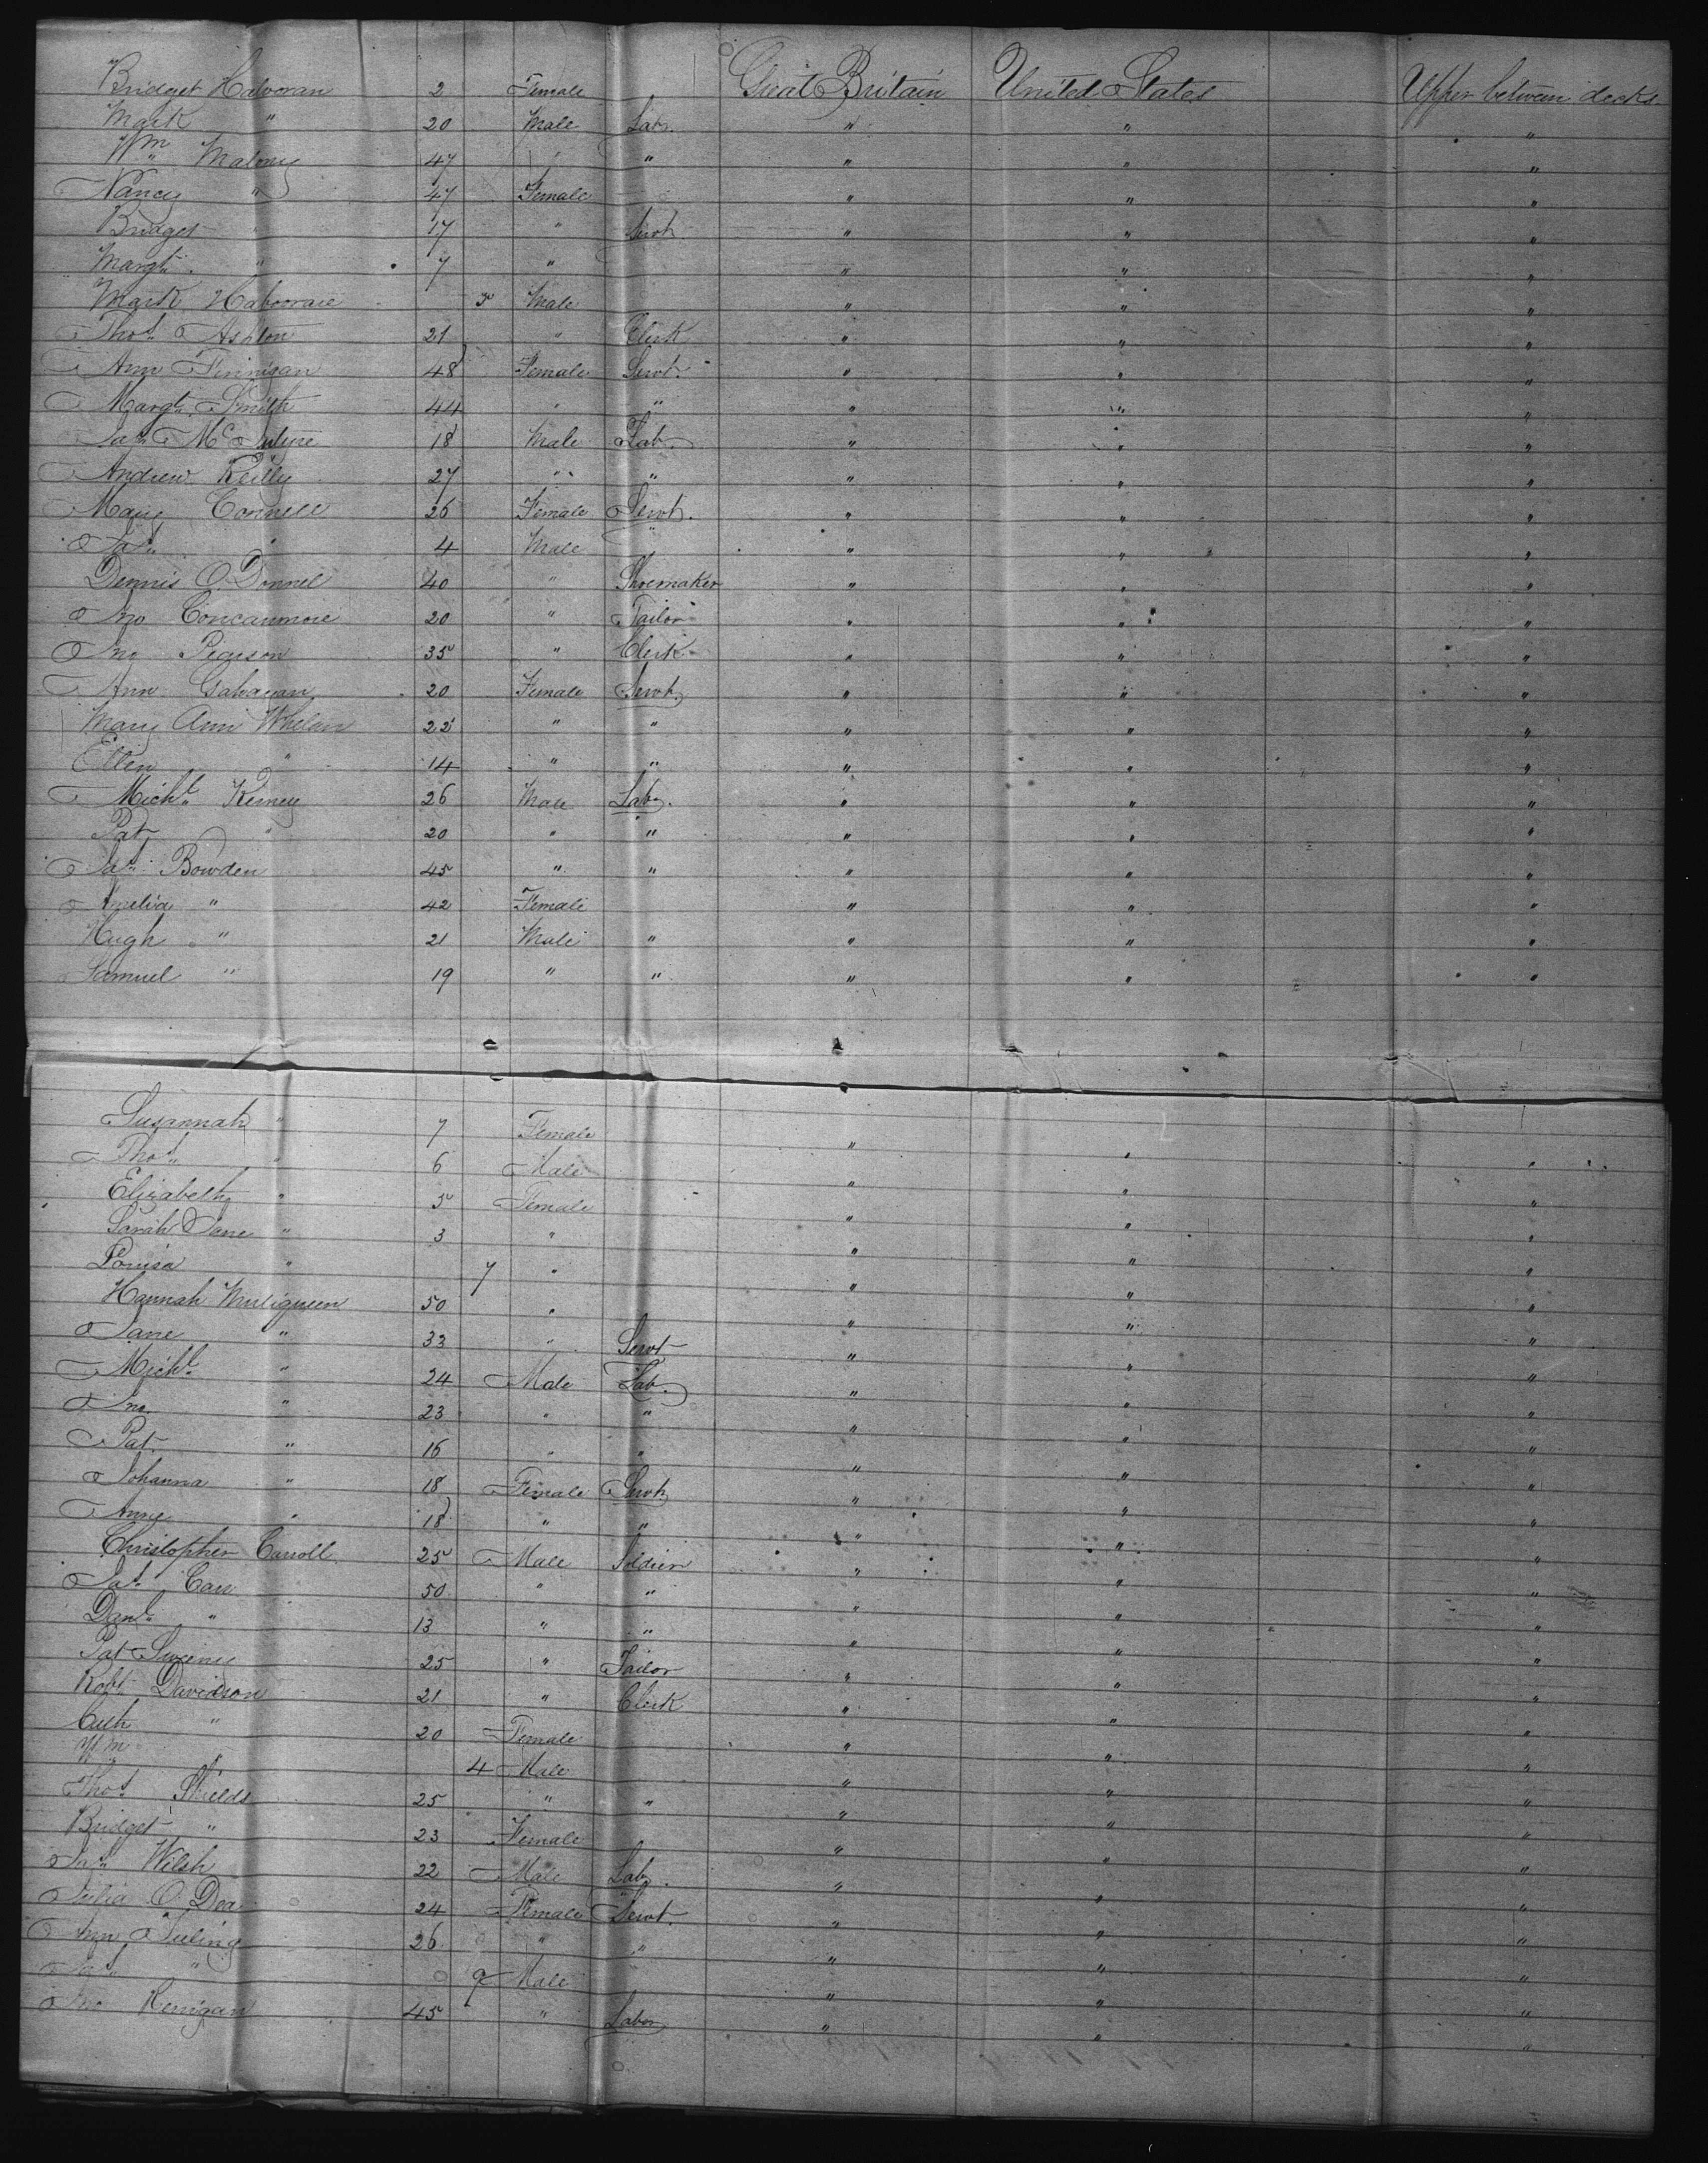 Bridget Halvoran 2 Female Great Britain United States Upper between decks
Mark " 20 Male Lab. " " "
Wm Malony 47 " " " " "
Nancy " 47 Female " " "
Bridget " 17 " Servt " " "
Margt. " 7 " " " "
Mark 5 Male " " "
Thos. Ashton 21 " Clerk " " "
Ann Finnigan 48 Female Servt. " " "
Margt. Smith 44 " " " " "
Jas. McIntyre 18 Male Lab. " " "
Andrew Reilly 27 " " " " "
Mary Connell 26 Female Servt. " " "
Jas. " 4 Male " " "
Dennis O.Donnel 40 " Shoemaker " " "
Jno Concanmore 20 " Tailor " " "
Jno Pearson 35 " Clerk " " "
Ann Gahagan 20 Female Servt. " " "
Mary Ann Whelan 22 " " " " "
Ellen " 14 " " " " "
Michl. Kerney 26 Male Lab. " " "
Pat " 20 " " " " "
Jas. Bowden 45 " " " " "
Amelia " 42 Female " " "
Hugh " 21 Male " " " "
Samuel " 19 " " " " "
Susannah " 7 Female " " "
Thos. " 6 Male " " "
Elizabeth " 5 Female " " "
Sarah Jane " 3 " " " "
Louisa " 7 " " " "
Hannah Muliqueen 50 " " " "
Jane " 33 " Servt " " "
Michl. " 24 Male Lab. " " "
Jno. " 23 " " " " "
Pat. " 16 " " " " "
Johanna " 18 Female Servt " " "
Anne " 18 " " " " "
Christopher Carroll 25 Male Soldier " " "
Jas. Carr 50 " " " " "
Danl. " 13 " " " " "
Pat Sweeny 25 " Tailor " " "
Robt. Davidson 21 " Clerk " " "
Cath " 20 Female " " "
Wm 4 Male " " "
Thos. Shields 25 " " " " "
Bridget " 23 Female " " "
Jas. Welsh 22 Male Lab. " " "
Julia O.Dea 24 Female Servt. " " "
Ann 26 " " " " "
Jas. " 9 Male " " "
Jno Kerrigan 45 " Labor " " "